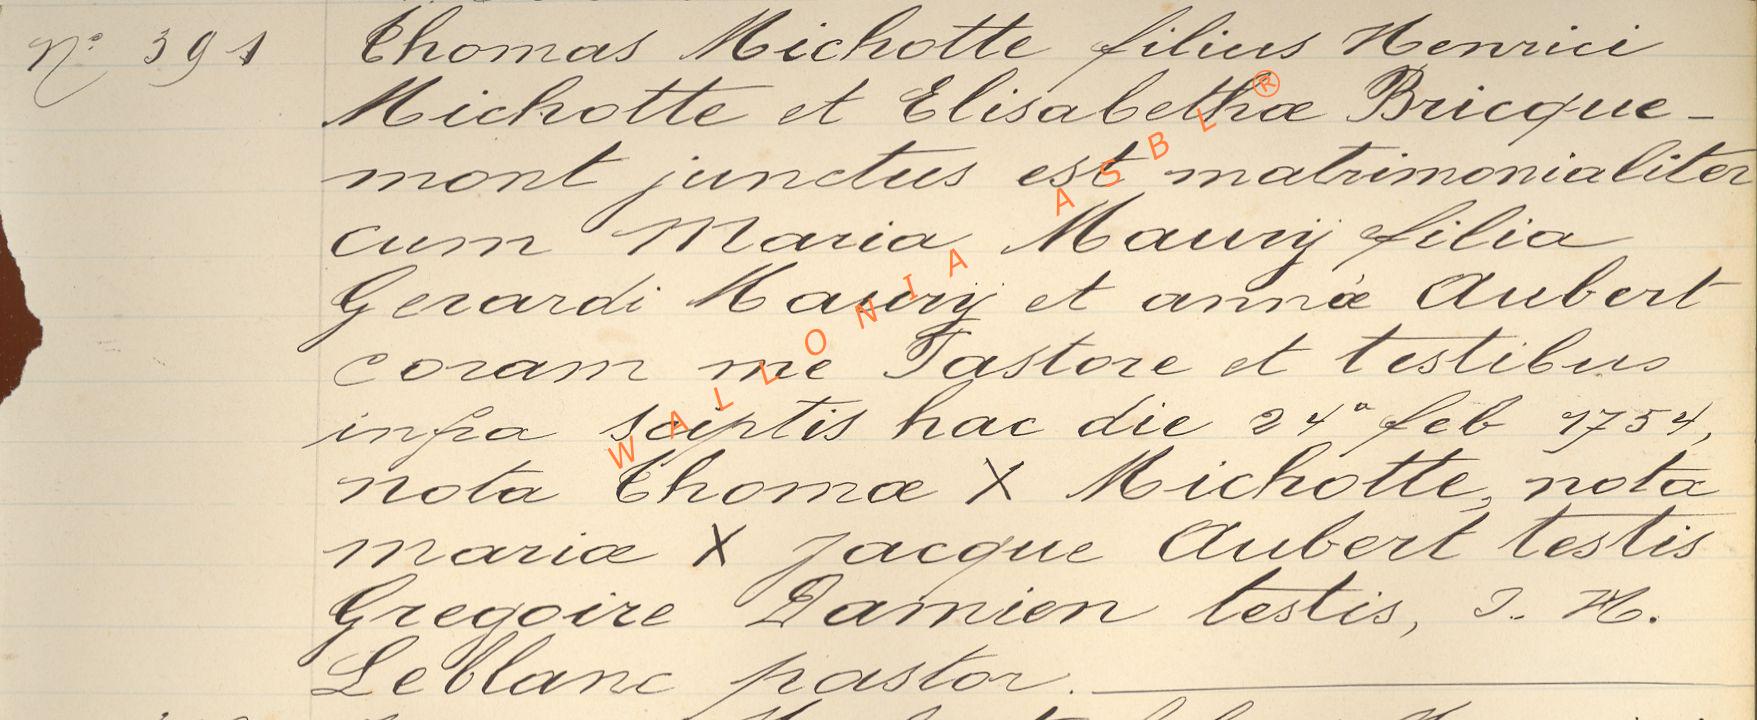 N° 391 Thomas Michotte filius Henrici
Michotte et Elisabethæ Bricque-
mont junctus est matrimonialiter
cum Maria Maury filia
Gerardi Maury et annæ Aubert
coram me Pastore et testibus
infra sciptis hac die 24ª feb 1754,
nota Thomæ X Michotte, nota
mariæ X Jacque Aubert testis
Gregoire Damien testis, J. H.
Leblanc pastor.
WALLONIA ASBL ®